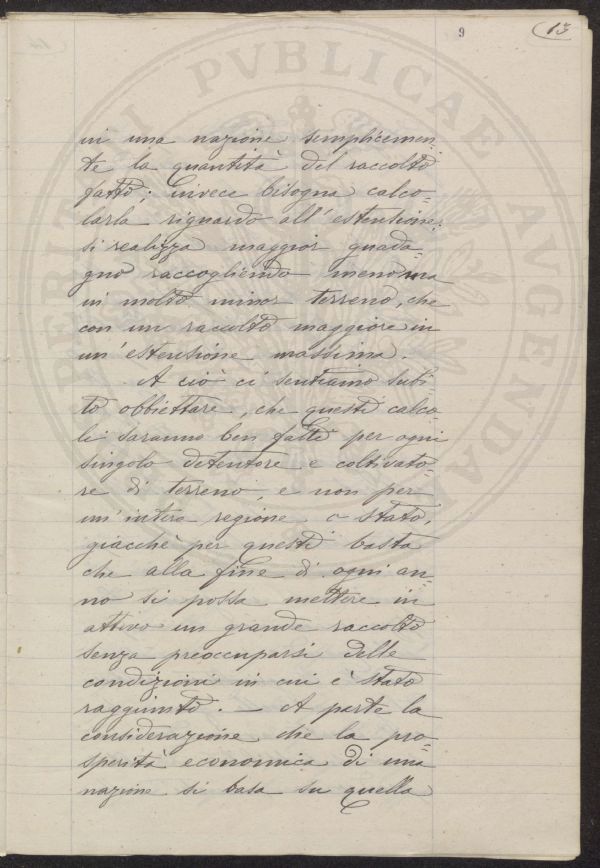 9
13
in una nazione semplicemen-
te la quantità del raccolto
fatto; invece bisogna calco-
larla riguardo all'estensione:
si realizza maggior guada-
gno raccogliendo meno ma
in molto minor terreno, che
con un raccolto maggiore in
un'estensione massima.
A ciò ci sentiamo subi-
to obbiettare, che questi calco-
li saranno ben fatti per ogni
singolo detentore e coltivato-
re di terreno, e non per
un'intera regione o stato,
giacchè per questi basta
che alla fine di ogni an-
no si possa mettere in
attivo un grande raccolto
senza preoccuparsi delle
condizioni in cui è stato
raggiunto. — A parte la
considerazione che la pro-
sperità economica di una
nazione si basa su quella